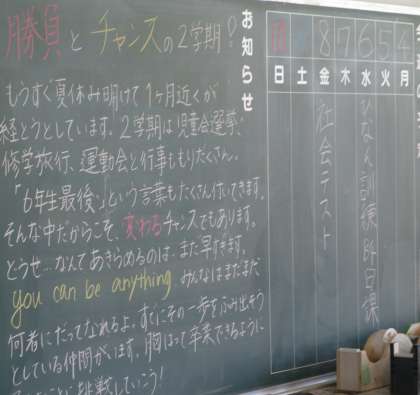 勝負とチャンスの2学期!
もうすぐ夏休み明けて1ヶ月近くが
経とうとしています。2学期は児童会選挙、
修学旅行、運動会と行事ももりだくさん。
「6年生最後。」という言葉もたくさん付いてきます。
そんな中だからこそ、変わるチャンスでもあります。
どうせ…なんてあきらめるのは…まだ早すぎます。
you can be anything みんなはまだまだ
何者にだってなれるよ。すぐにその一歩をふみ出そう
としている仲間がいます。胸はって卒業できるように
に挑戦していこう!
お知らせ
8 7 6 5 4
日 土 金 木 水 火 月
社会テスト
ひなん訓練 昨日課